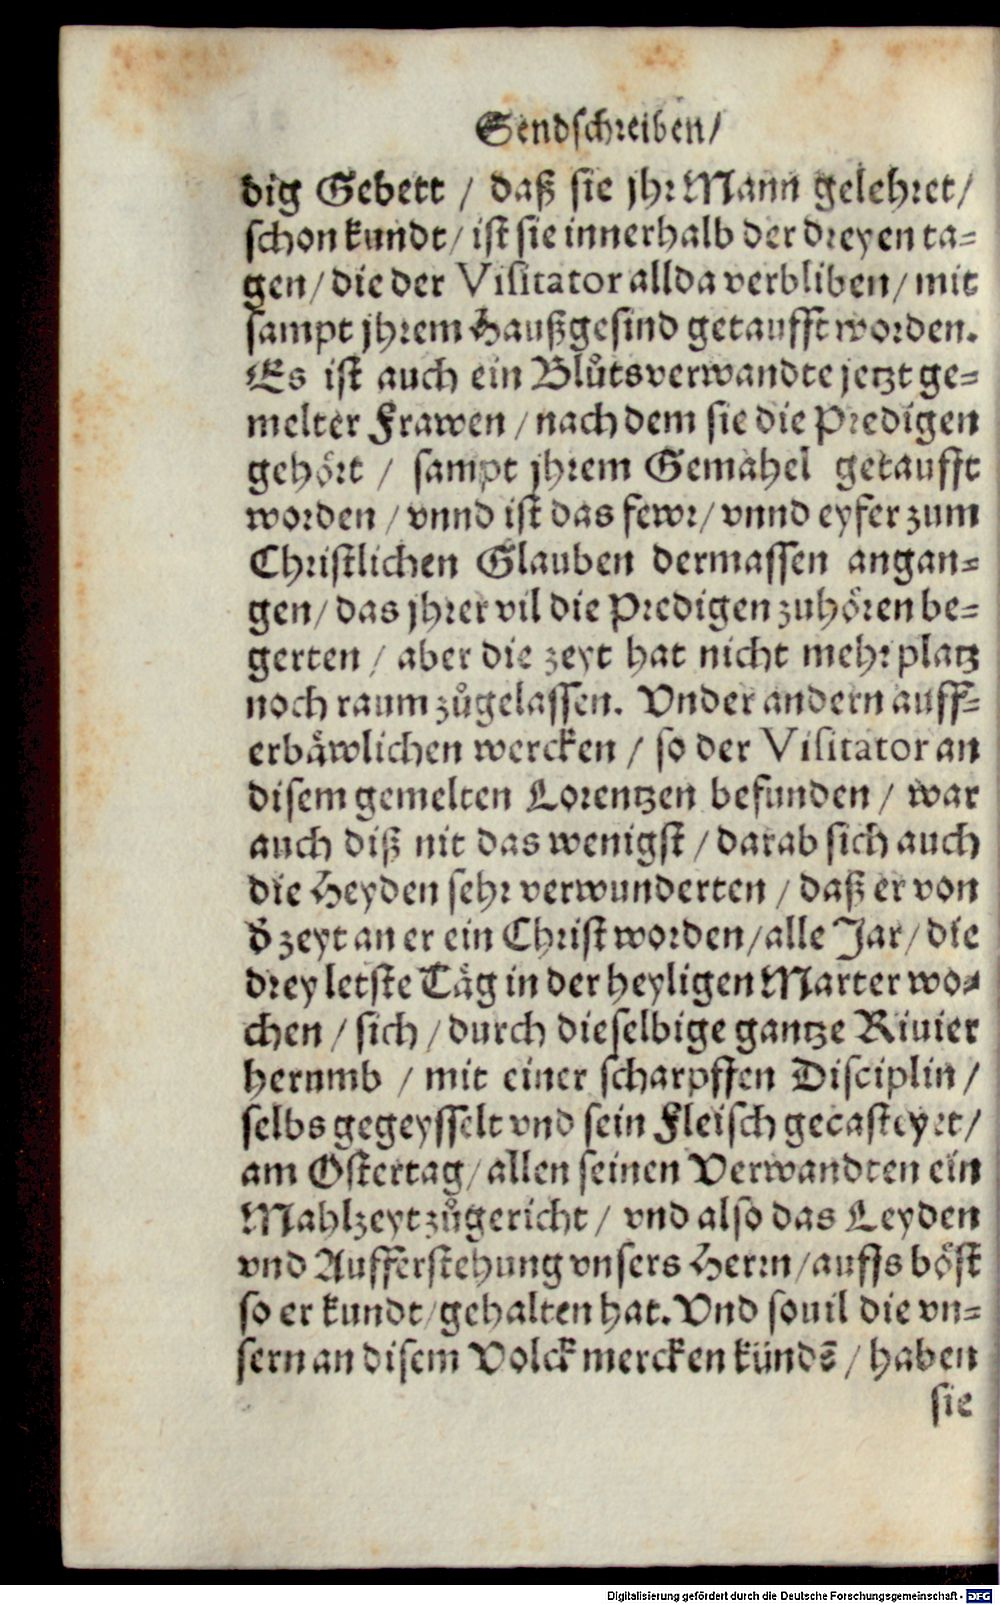 Sendschreiben/
dig Gebett / daß sie jhr Mann gelehret/
schon kundt/ ist sie innerhalb der dreyen ta=
gen/ die der Visitator allda verbliben/ mit
sampt jhrem Haußgesind getaufft worden.
Es ist auch ein Blůtsverwandte jetzt ge=
melter Frawen / nach dem sie die Predigen
gehört / sampt jhrem Gemahel getaufft
worden / vnnd ist das fewr/ vnnd eyfer zum
Christlichen Glauben dermassen angan=
gen/ das jhrer vil die Predigen zuhören be=
gerten / aber die zeyt hat nicht mehr platz
noch raum zůgelassen. Vnder andern auff=
erbäwlichen wercken / so der Visitator an
disem gemelten Lorentzen befunden / war
auch diß nit das wenigst / darab sich auch
die Heyden sehr verwunderten / daß er von
d' zeyt an er ein Christ worden/ alle Jar/ die
drey letste Täg in der heyligen Marter wo=
chen / sich / durch dieselbige gantze Riuier
herumb / mit einer scharpffen Disciplin /
selbs gegeysselt vnd sein Fleisch gecasteyet/
am Ostertag/ allen seinen Verwandten ein
Mahlzeyt zůgericht / vnd also das Leyden
vnd Aufferstehung vnsers Herrn/ auffs böst
so er kundt/ gehalten hat. Vnd souil die vn=
sern an disem Volck mercken kündē / haben
sie
Digitalisierung gefördert durch die Deutsche Forschungsgemeinschaft - DFG